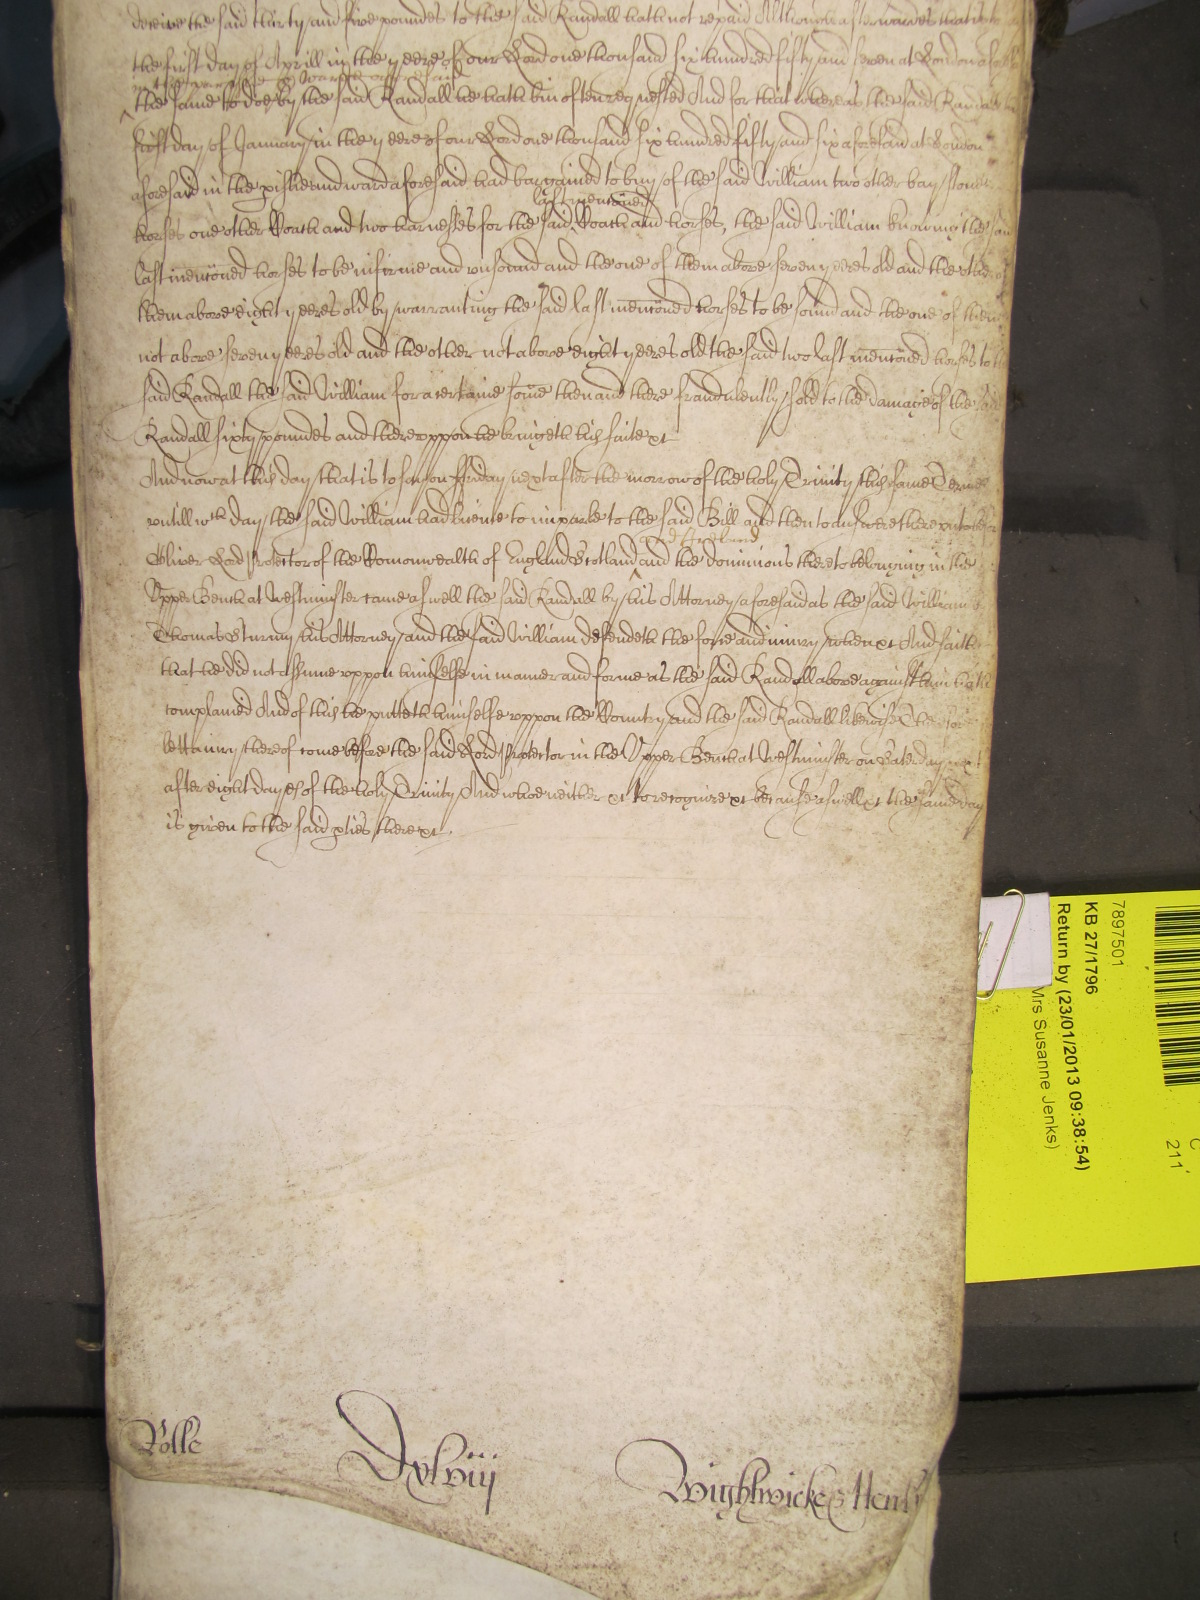 deceive the said thirty and five poundes to the said Randall hath not repaid Although afterwardes that is to
the first day of Aprill in the yeere of our Lord one thousand six hundred fifty and seven at London afores
in the parishe & warde aforesaid
the same to doe by the said Randall he hath bin often requested And for that whereas the said Randall
first day of January in the yeere of our Lord one thousand six hundred fifty and six aforesaid at London
aforesaid in the pishe and ward aforesaid had bargained to buy of the said William two other bay stoned
last mentioned
horses one other Coach and two harnesses for the said Coach and horses, the said William knowing the said
last menconed horses to be infirme and unsound and the one of them above seven yeeres old and the other of
them above eight yeeres old by warranting the said last menconed horses to be sound and the one of them
not above seven yeeres old and the other not above eight yeeres old the said two last menconed horses to the
said Randall the said William for a certaine some then and there fraudulently sold to the damage of the said
Randall sixty poundes and thereuppon he bringeth his suite xt
And now at this day that is to say on ffriday next after the morrow of the holy Trinity this same Terme
untill wch day the said William had licence to imparle to the said Bill and then to answere there unto before
and Ireland
Oliver Lord Protector of the Comonwealth of England Scotland and the dominions thereto belonging in the
Upper Bench at Westminster came aswell the said Randall by his Attorney aforesaid as the said William by
Thomas Sturmy his Attorney and the said William defendeth the force and iniury when xt And saith
that he did not assume uppon himselfe in manner and forme as the said Randall above against him hath
complained And of this he putteth himselfe uppon the Country and the said Randall likewise Therfore
lett a iury thereof come before the said Lord Protector in the Upper Bench at Westminster on Saterday next
after eight dayes of the holy Trinity And who neither xt to recognize xt because aswell xt the same day
is given to the said pties there xt
Rolle
Dxlviij
Wightwicke & Henl
7897501
KB 27/1796
Return by (23/01/2013 09:38:54)
Mrs Susanne Jenks)
C
211